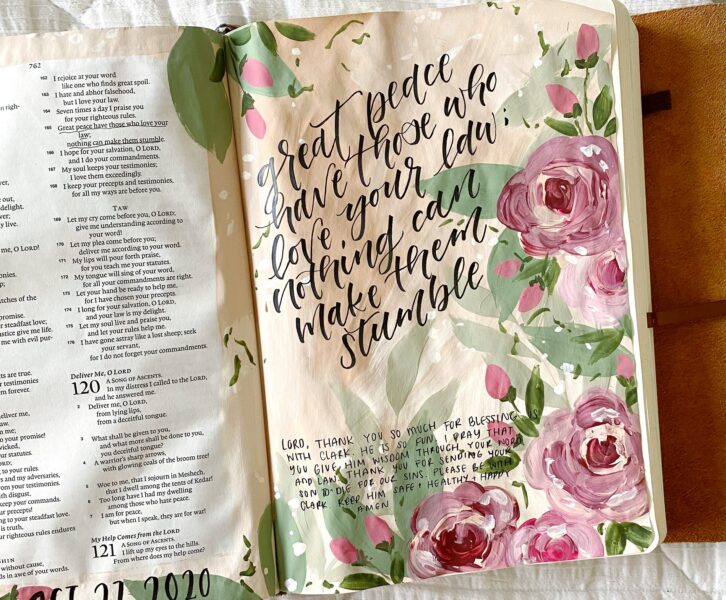 762
162 I rejoice at your word
like one who finds great spoil.
163 I hate and abhor falsehood,
but I love your law.
164 Seven times a day I praise you
for your righteous rules.
165 Great peace have those who love your
law;
nothing can make them stumble.
166 I hope for your salvation, O LORD,
and I do your commandments.
167 My soul keeps your testimonies;
I love them exceedingly.
168 I keep your precepts and testimonies,
for all my ways are before you.
TAW
169 Let my cry come before you, O LORD;
give me understanding according to
your word!
170 Let my plea come before you;
deliver me according to your word.
171 My lips will pour forth praise,
for you teach me your statutes.
172 My tongue will sing of your word,
for all your commandments are right.
173 Let your hand be ready to help me,
for I have chosen your precepts.
174 I long for your salvation, O LORD,
and your law is my delight.
175 Let my soul live and praise you,
and let your rules help me.
176 I have gone astray like a lost sheep; seek
your servant,
for I do not forget your commandments.
Deliver Me, O LORD
120 A SONG OF ASCENTS.
In my distress I called to the LORD,
and he answered me.
2 Deliver me, O LORD,
from lying lips,
from a deceitful tongue.
3 What shall be given to you,
and what more shall be done to you,
you deceitful tongue?
4 A warrior's sharp arrows,
with glowing coals of the broom tree!
5 Woe to me, that I sojourn in Meshech,
that I dwell among the tents of Kedar!
6 Too long have I had my dwelling
among those who hate peace.
7 I am for peace,
but when I speak, they are for war!
My Help Comes from the LORD
121 A SONG OF ASCENTS.
I lift up my eyes to the hills.
From where does my help come?
2020
great peace
have those who
love your law;
nothing can
make them
stumble
LORD, THANK YOU SO MUCH FOR BLESSING US
WITH CLARK. HE IS SO FUN. I PRAY THAT
YOU GIVE HIM WISDOM THROUGH YOUR WORD
AND LAW. THANK YOU FOR SENDING YOUR
SON TO DIE FOR OUR SINS. PLEASE BE WITH
CLARK. KEEP HIM SAFE + HEALTHY + HAPPY
AMEN